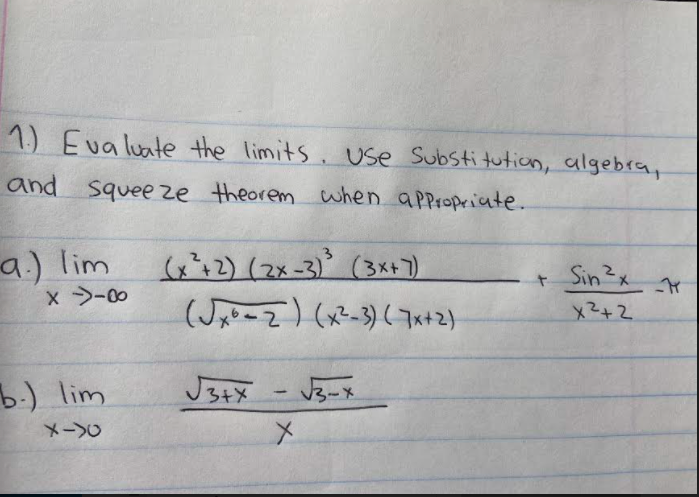 1.) Evaluate the limits. Use Substitution, algebra,
and squeeze theorem when appropriate.
a.) lim x→-∞ (x²+2)(2x-3)³(3x+7) / (√(x⁶-2))(x²-3)(7x+2) + sin²x / x²+2 - π
b.) lim x→0 √(3+x) - √(3-x) / x